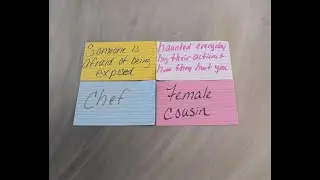 Someone is
afraid of being
exposed
haunted everyday
by their actions &
how they hurt you
Chef
Female
Cousin